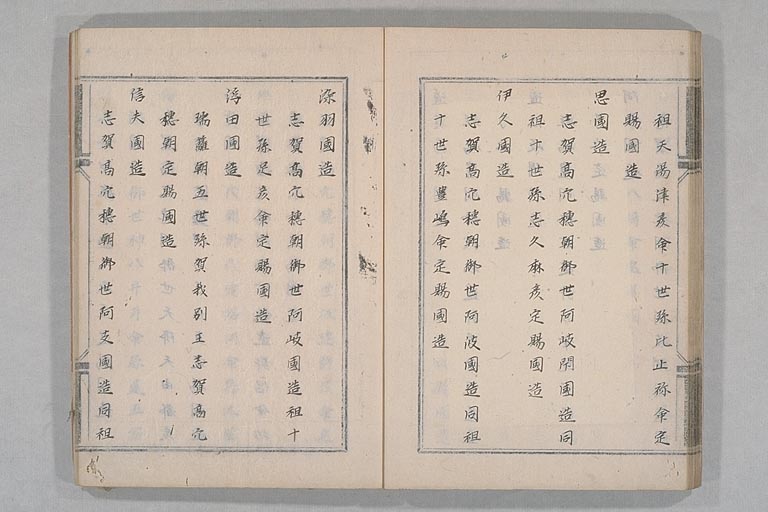 祖天湯津彦命十世孫比止祢命定
賜國造
思國造
志賀高穴穗朝御世阿岐閇國造同
祖十世孫志久麻彦定賜國造
伊久國造
志賀高穴穗朝御世阿岐國造同祖
十世孫豊嶋命定賜國造
染羽國造
志賀高穴穗朝御世阿岐國造祖十
世孫足彦命定賜國造
浮田國造
瑞籬朝五世孫賀我別王志賀高穴
穗朝定賜國造
信夫國造
志賀高穴穗朝御世阿支國造同祖